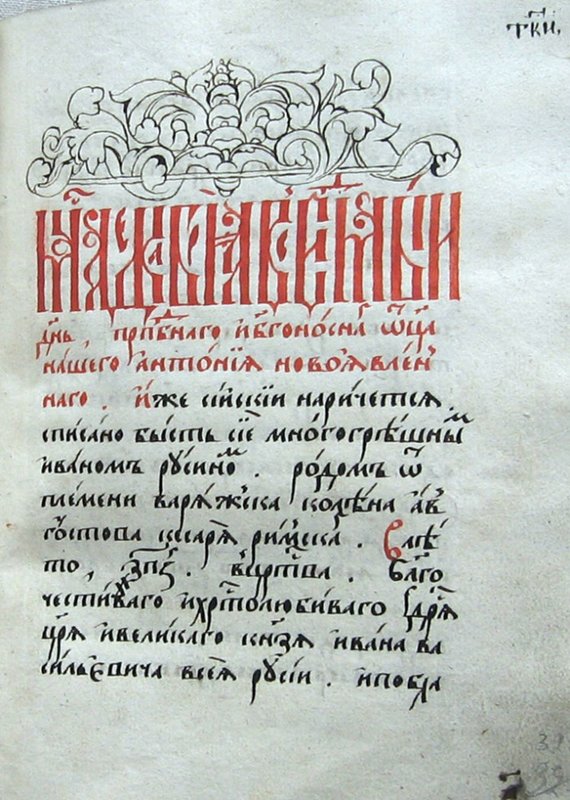 ткп҃и,
мц҃а декабрѧ въ з҃ и
дн҃ь прпⷣбнаго и бг҃оносна ѡц҃а
нашего антѡ́нїѧ новоѧвлен
наго . иже сійскїи наричетсѧ
списано бысть сїе многогрѣшныⷨ
иваномъ русиноⷨ . родомъ ѿ
племени варѧжска колѣна ав
гꙋстова кесарѧ римска . Влѣ
то , зп҃з . въ црⷭтва . благо
честиваго ихрⷭтолюбиваго гдⷭрѧ
цр҃ѧ ивеликаго кнз҃ѧ ивана ва
сильевича всеѧ русіи . ипобл҃а